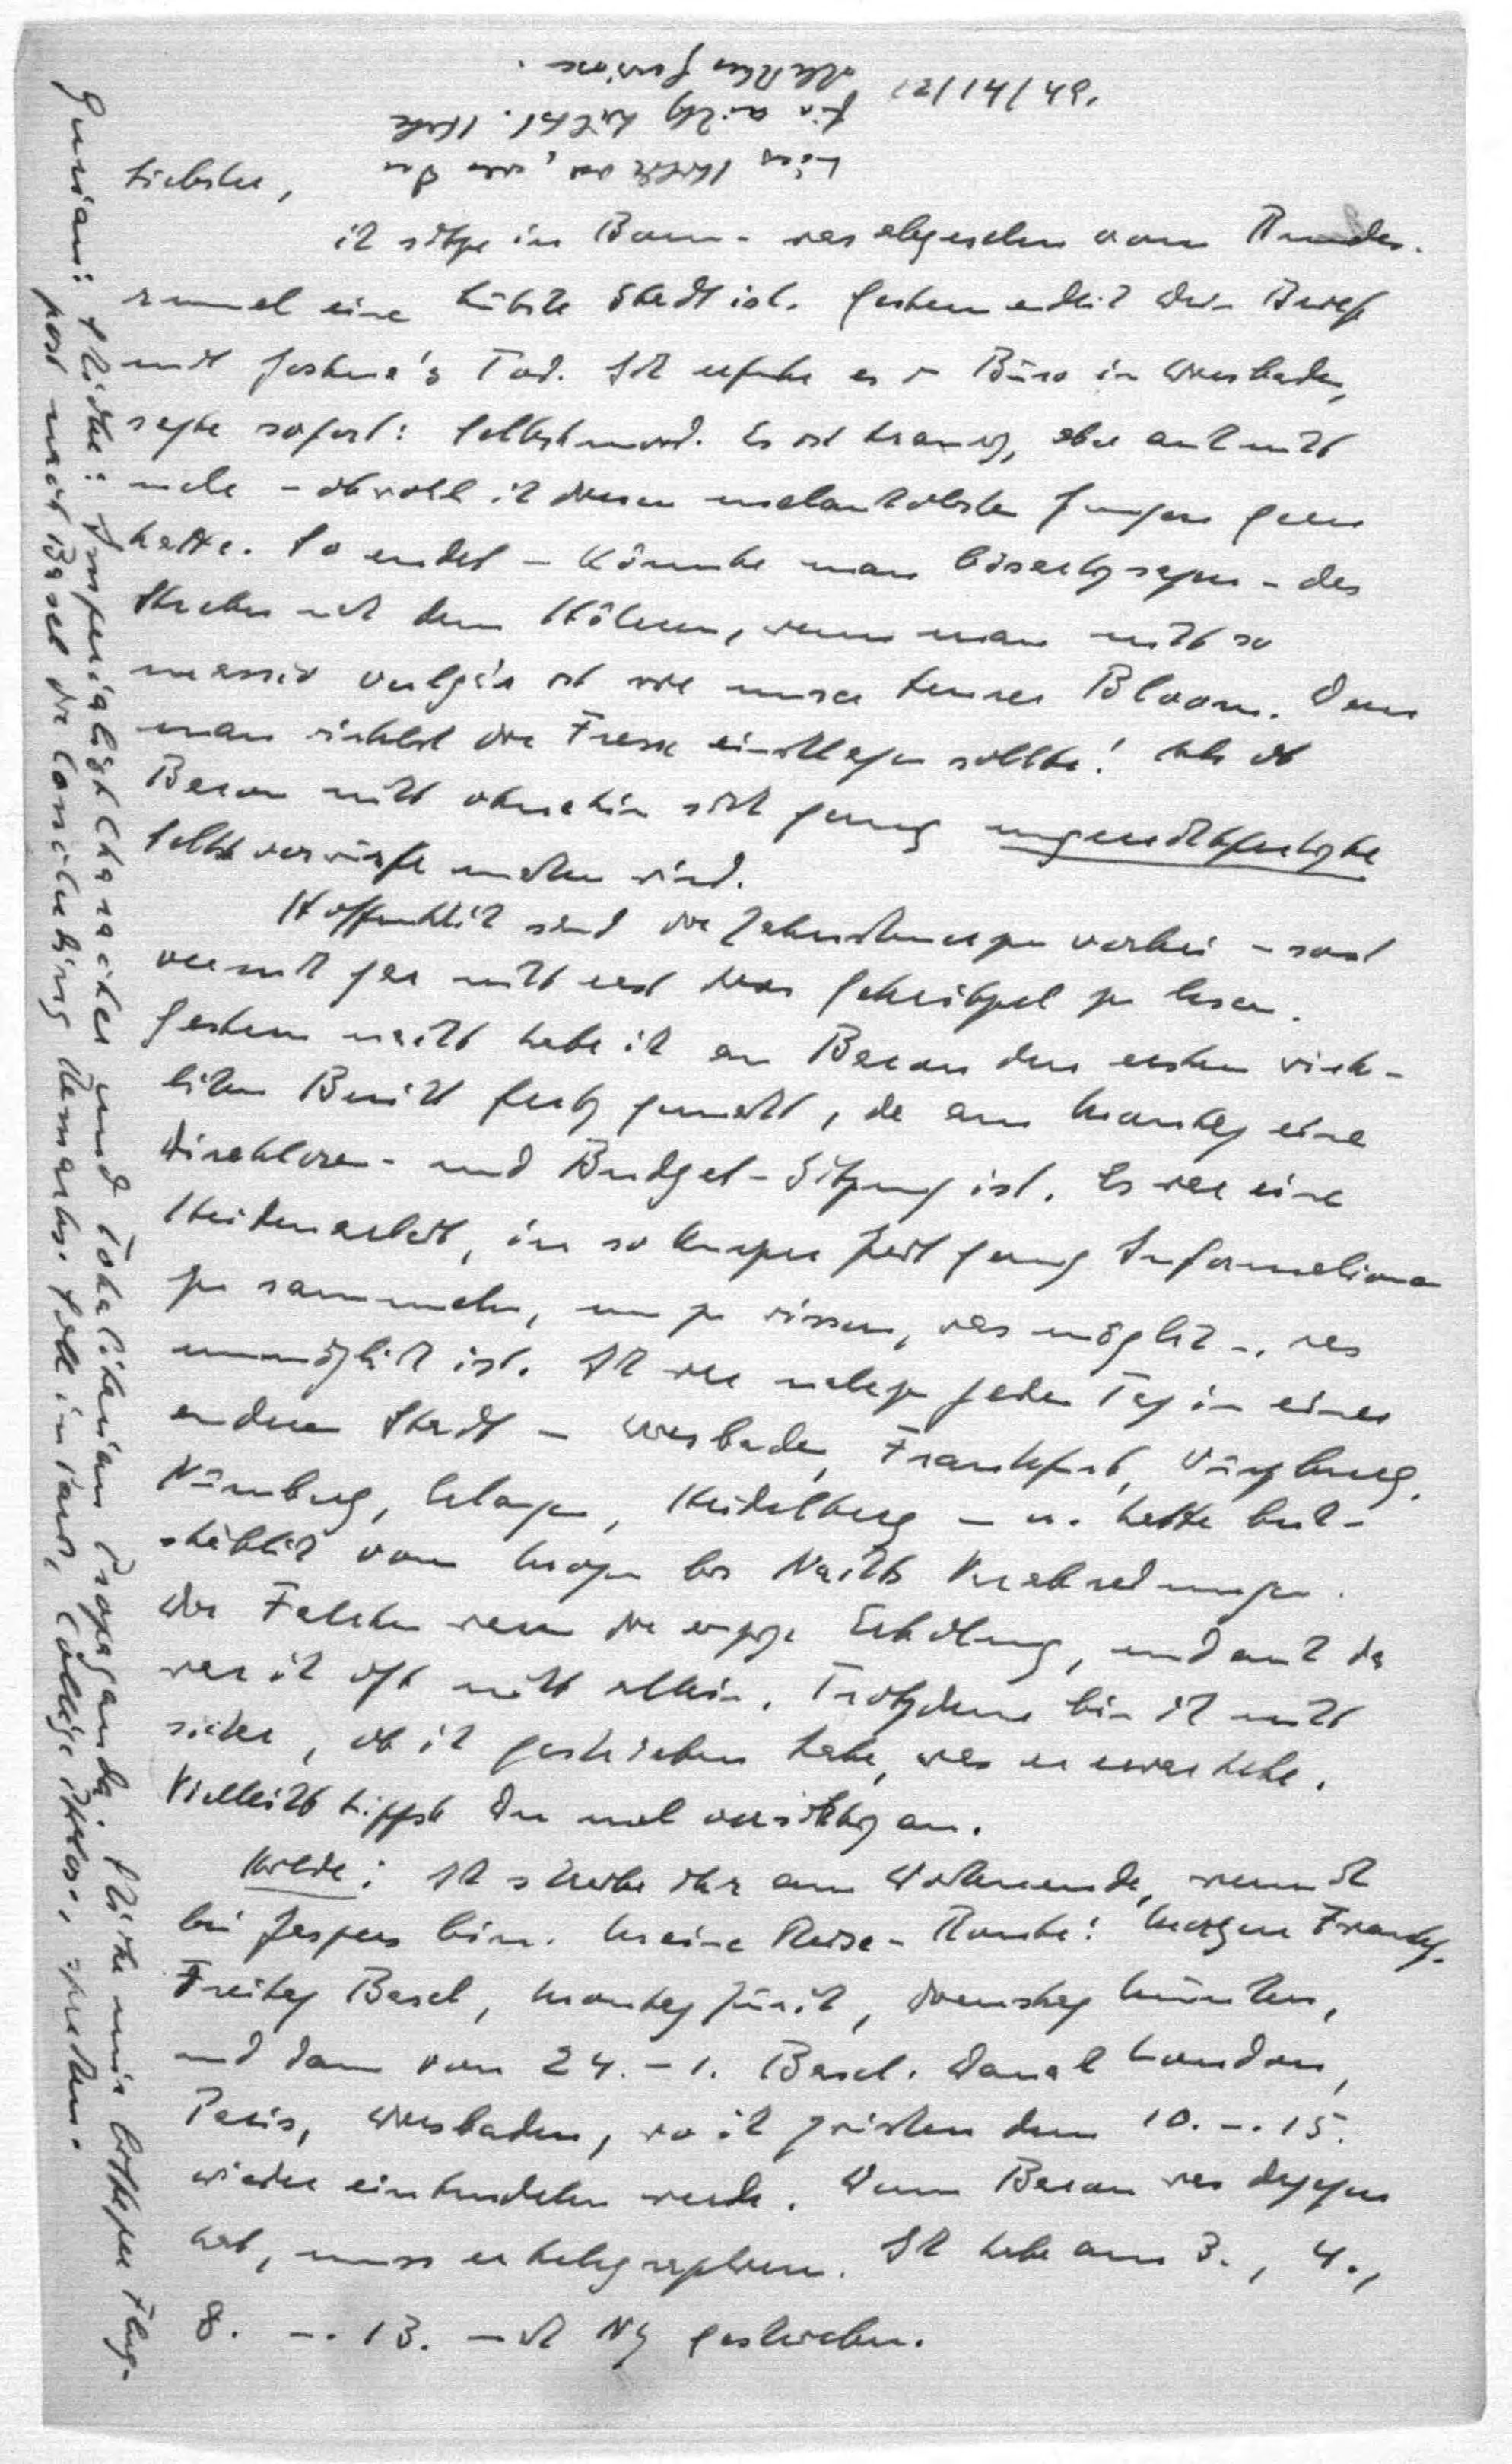 Liebster,
ich sitze in Bonn - was abgesehen vom Bundes-
rummel eine hübsche Stadt ist. Gestern erhielt Dein Brief
mit Joshua's Tod. Ich erfuhr es im Büro in Wiesbaden,
sagte sofort: Selbstmord. Es ist traurig, aber auch nicht
mehr - obwohl ich diesen melancholischen Jungen gern
hatte. So endet - könnte man bösartig sagen - das
Streben nach dem Höheren, wenn man nicht so
massiv vulgär ist wie unser teurer Bloom. Dem
man wirklich die Fresse einschlagen sollte! Als ob
Baron nicht ohnehin sich genug ungerechtfertigte
Selbstvorwürfe machen wird.
Hoffentlich sind die Zahnschmerzen vorbei - sonst
vermag gar nicht erst dies Gekritzel zu lesen.
Gestern nacht habe ich an Baron den ersten wirk-
lichen Bericht fertig gemacht, da am Montag eine
Direktoren- und Budget-Sitzung ist. Es war eine
Heidenarbeit, in so knapper Zeit genug Informationen
zu sammeln, um zu wissen, was möglich u. was
unmöglich ist. Ich war nahezu jeden Tag in einer
anderen Stadt - Wiesbaden, Frankfurt, Würzburg,
Nürnberg, Erlangen, Heidelberg - u. hatte buch-
stäblich vom Morgen bis Nachts Verabredungen.
Die Fahrten waren die einzige Erholung, und auch da
war ich oft nicht allein. Trotzdem bin ich nicht
sicher, ob ich geschrieben habe, was er erwartete.
Vielleicht tippst Du mal vorsichtig an.
Hilde: Ich schreibe ihr am Wochenende, wenn ich
bei Jaspers bin. Meine Reise-Route: Morgen Frankf.
Freitag Basel, Montag Zürich, Dienstag München,
und dann vom 24. - 1. Basel. Danach London,
Paris, Wiesbaden, wo ich zwischen dem 10. u. 15.
wieder eintrudeln werde. Wenn Baron was dagegen
hat, muss er telegraphieren. Ich habe am 3., 4.,
8. u. 13. nach NY geschrieben.
Gurian: schicke: Imperialist character und Totalitarian Propaganda. Schicke mir bitte per Flug-
post nach Basel die Concluding Remarks. Soll in Paris, Collège philos., sprechen.